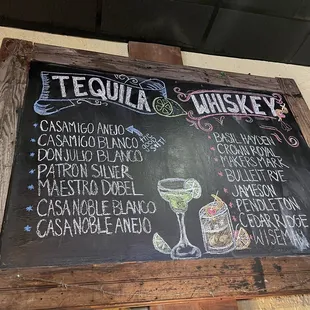 TEQUILA
CASAMIGO ANEJO
CASAMIGO BLANCO
DON JULIO BLANCO
PATRON SILVER
MAESTRO DOBEL
CASA NOBLE BLANCO
CASA NOBLE ANEJO
WHISKEY
BASIL HAYDEN
CROWN ROYAL
MAKERS MARK
BULLEIT RYE
JAMESON
PENDLETON
CEDAR RIDGE
WISEMAN